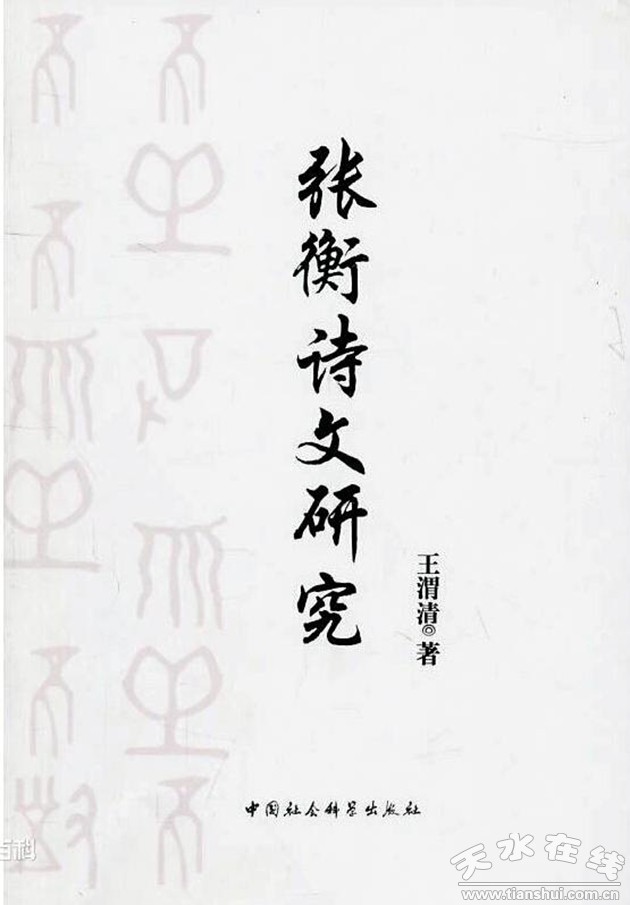 张衡诗文研究
王渭清◎著
中国社会科学出版社
百科
天水在线
www.tianshui.com.cn